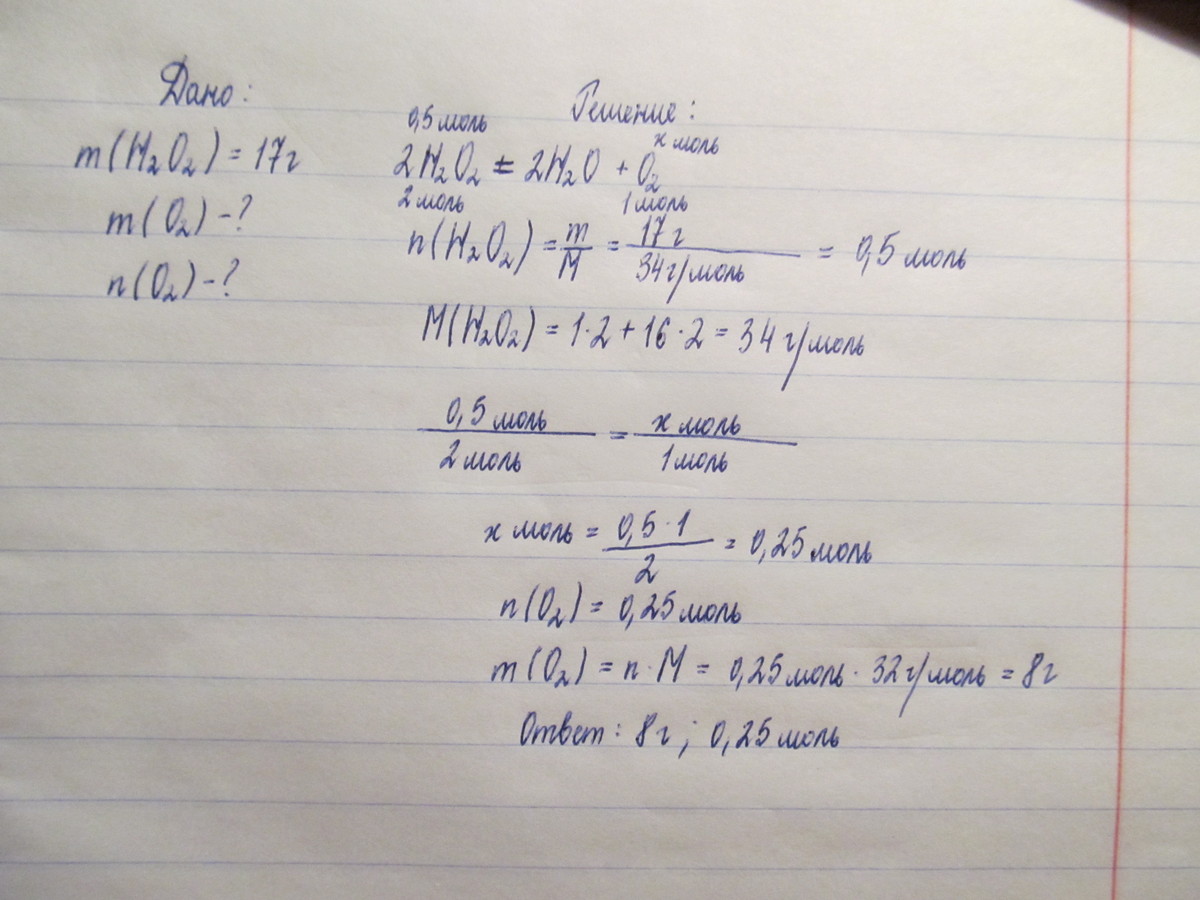 Дано:
m(H₂O₂) = 17г
m(O₂) -?
n(O₂) -?
Решение:
0,5 моль х моль
2H₂O₂ = 2H₂O + O₂
2 моль 1 моль
n(H₂O₂) = m/M = 17 г/34 г/моль = 0,5 моль
M(H₂O₂) = 1·2 + 16·2 = 34 г/моль
0,5 моль/2 моль = х моль/1 моль
х моль = 0,5·1/2 = 0,25 моль
n(O₂) = 0,25 моль
m(O₂) = n·M = 0,25 моль · 32 г/моль = 8г
Ответ: 8г; 0,25 моль